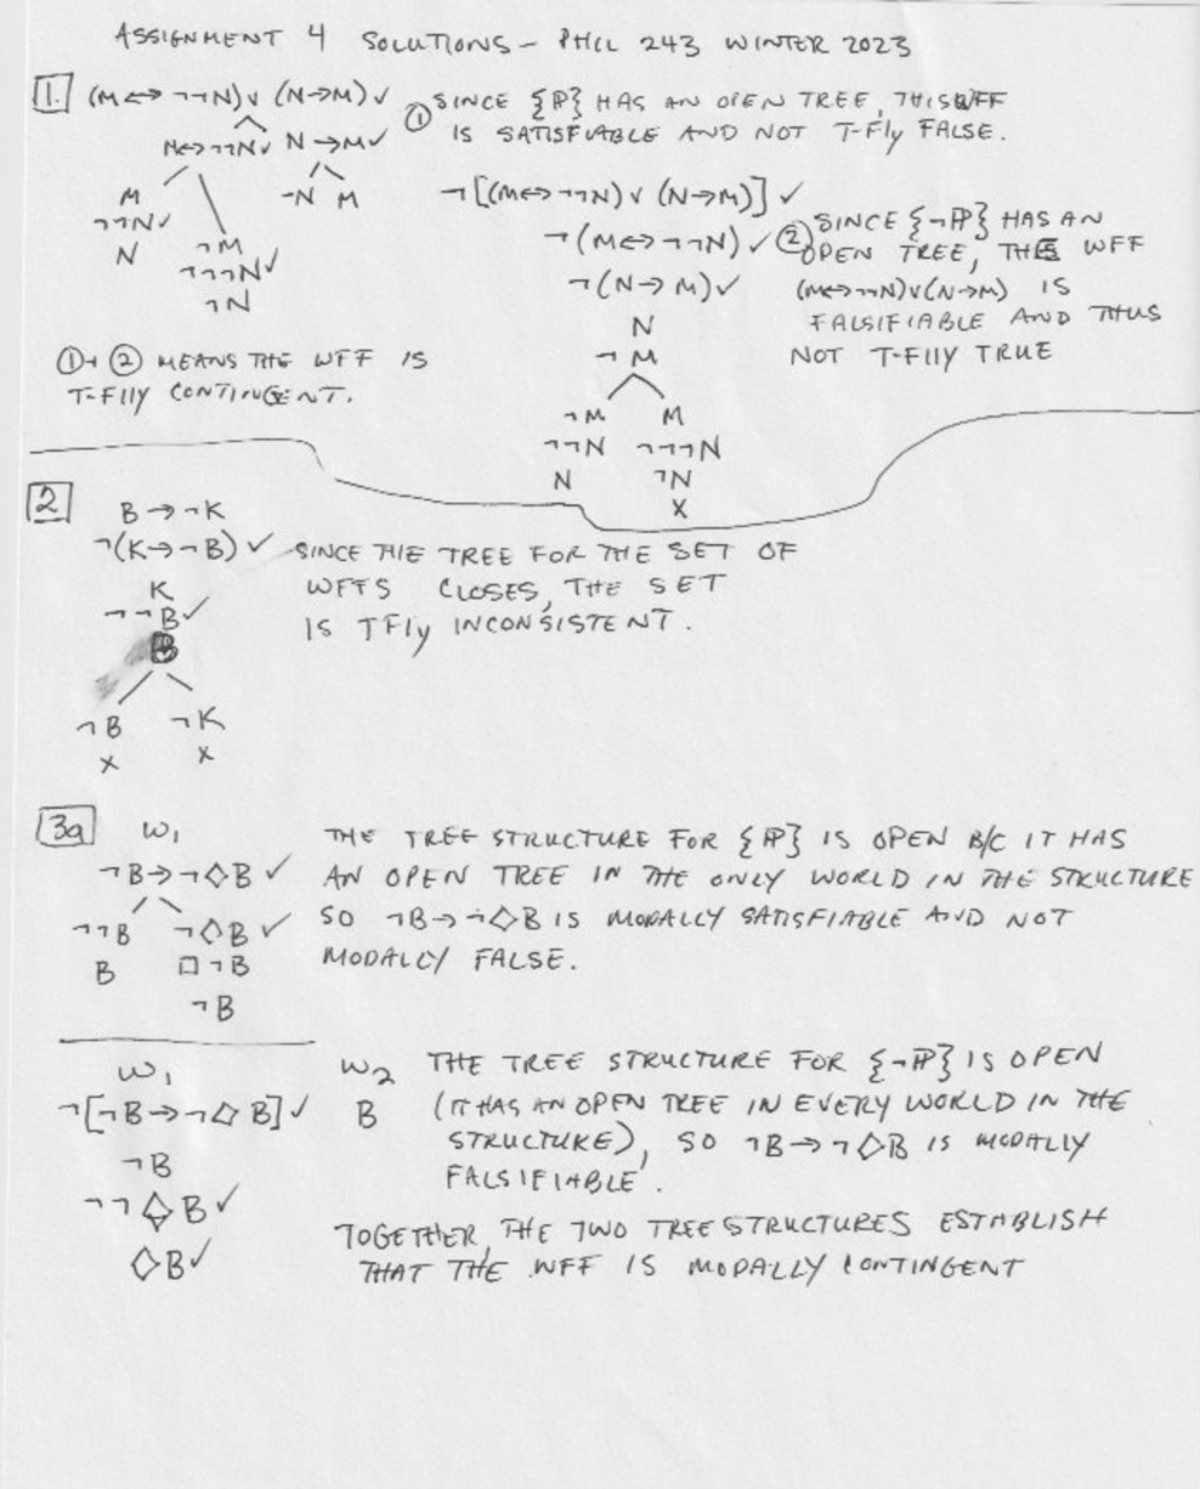 ASSIGNMENT 4 SOLUTIONS – PHIL 243 WINTER 2023
1. (M↔¬¬N)∨(N→M)✓
① SINCE {ℙ} HAS AN OPEN TREE, THIS WFF
IS SATISFIABLE AND NOT T-Fly FALSE.
M↔¬¬N✓ N→M✓
M ¬N M
¬¬N✓
N
¬M
¬¬¬N✓
¬N
¬[(M↔¬¬N)∨(N→M)]✓
¬(M↔¬¬N)✓
¬(N→M)✓
N
¬M
¬M M
¬¬N ¬¬¬N
N ¬N
X
② SINCE {¬ℙ} HAS AN
OPEN TREE, THE WFF
(M↔¬¬N)∨(N→M) IS
FALSIFIABLE AND THUS
NOT T-Flly TRUE
①+② MEANS THE WFF IS
T-Flly CONTINGENT.
2
B→¬K
¬(K→¬B)✓
K
¬¬B✓
B
¬B ¬K
X X
SINCE THE TREE FOR THE SET OF
WFFS CLOSES, THE SET
IS TFly INCONSISTENT.
3a W₁
¬B→¬◇B✓
¬¬B ¬◇B✓
B □¬B
¬B
THE TREE STRUCTURE FOR {ℙ} IS OPEN B/C IT HAS
AN OPEN TREE IN THE ONLY WORLD IN THE STRUCTURE
SO ¬B→¬◇B IS MODALLY SATISFIABLE AND NOT
MODALLY FALSE.
W₁ W₂
¬[¬B→¬◇B]✓ B
¬B
¬¬◇B✓
◇B✓
THE TREE STRUCTURE FOR {¬ℙ} IS OPEN
(IT HAS AN OPEN TREE IN EVERY WORLD IN THE
STRUCTURE), SO ¬B→¬◇B IS MODALLY
FALSIFIABLE.
TOGETHER, THE TWO TREE STRUCTURES ESTABLISH
THAT THE WFF IS MODALLY CONTINGENT